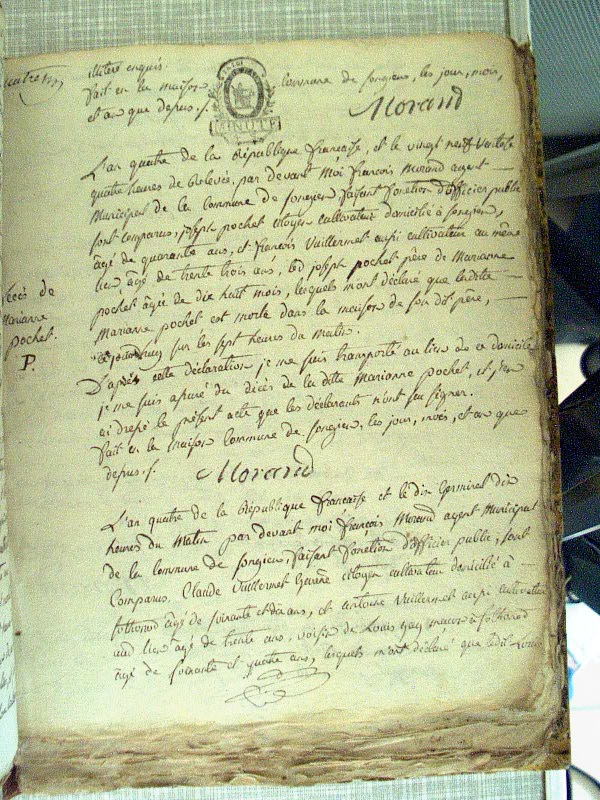 illitéré enquis.
fait en la maison commune de songieu, les jour, mois,
et an que depus. /.
Morand
MINUTE
L'an quatre de la République française, et le vingt neuf Ventose
quatre heures de Relevée, par devant Moi françois Morand agent
Municipal de la Commune de songieu faisant fonction d'officier public
sont comparus, joseph pochet citoyen cultivateur domicilié à songieu,
âgé de quarante ans, et françois Vuillermet aussi cultivateur au même
lieu, âgé de trente trois ans, led joseph pochet père de Marianne
pochet âgée de dix huit mois, lesquels m'ont déclaré que ladite
Marianne pochet est morte dans la maison de son dit père,
cejourdhuy sur les sept heures du matin.
Décès de
Marianne
pochet.
P.
D'après cette déclaration je me suis transporté au lieu de ce domicile
je me suis assuré du décès de la dite Marianne pochet, et j'en
ai dressé le présent acte que les déclarants n'ont su signer.
fait en la maison Commune de songieu, les jour, mois, et an que
depus. /.
Morand
L'an quatre de la République française et le dix Germinal dix
heures du Matin par devant moi françois Morand agent Municipal
de la commune de songieu, faisant fonction d'officier public, sont
Comparus, Claude Vuillermet citoyen cultivateur domicilié à
fothonod âgé de soixante et dix ans, et antoine Vuillermet aussi cultivateur
aud lieu âgé de trente ans, voisin de Louis Gay à fothonod
âgé de soixante et quatre ans, lesquels m'ont déclaré que ledit Louis